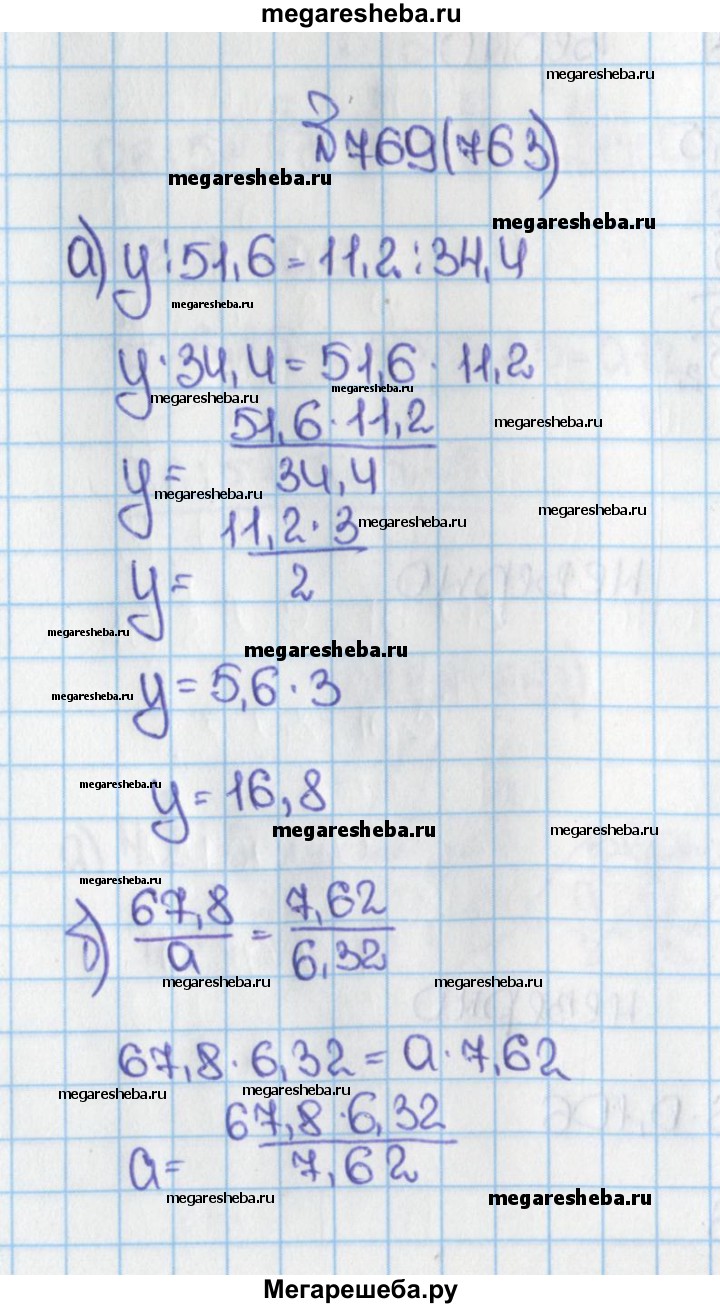 megaresheba.ru
megaresheba.ru
№769(763)
megaresheba.ru
megaresheba.ru
а) y:51,6=11,2:34,4
megaresheba.ru
y·34,4=51,6·11,2
megaresheba.ru
megaresheba.ru
51,6·11,2
megaresheba.ru
y= 34,4
megaresheba.ru
megaresheba.ru
11,2·3
megaresheba.ru
y= 2
megaresheba.ru
megaresheba.ru
y=5,6·3
megaresheba.ru
megaresheba.ru
y=16,8
megaresheba.ru
megaresheba.ru
megaresheba.ru
б) 67,8/a = 7,62/6,32
megaresheba.ru
megaresheba.ru
67,8·6,32=a·7,62
megaresheba.ru
megaresheba.ru
megaresheba.ru
67,8·6,32
a= 7,62
megaresheba.ru
megaresheba.ru
Мегарешеба.ру